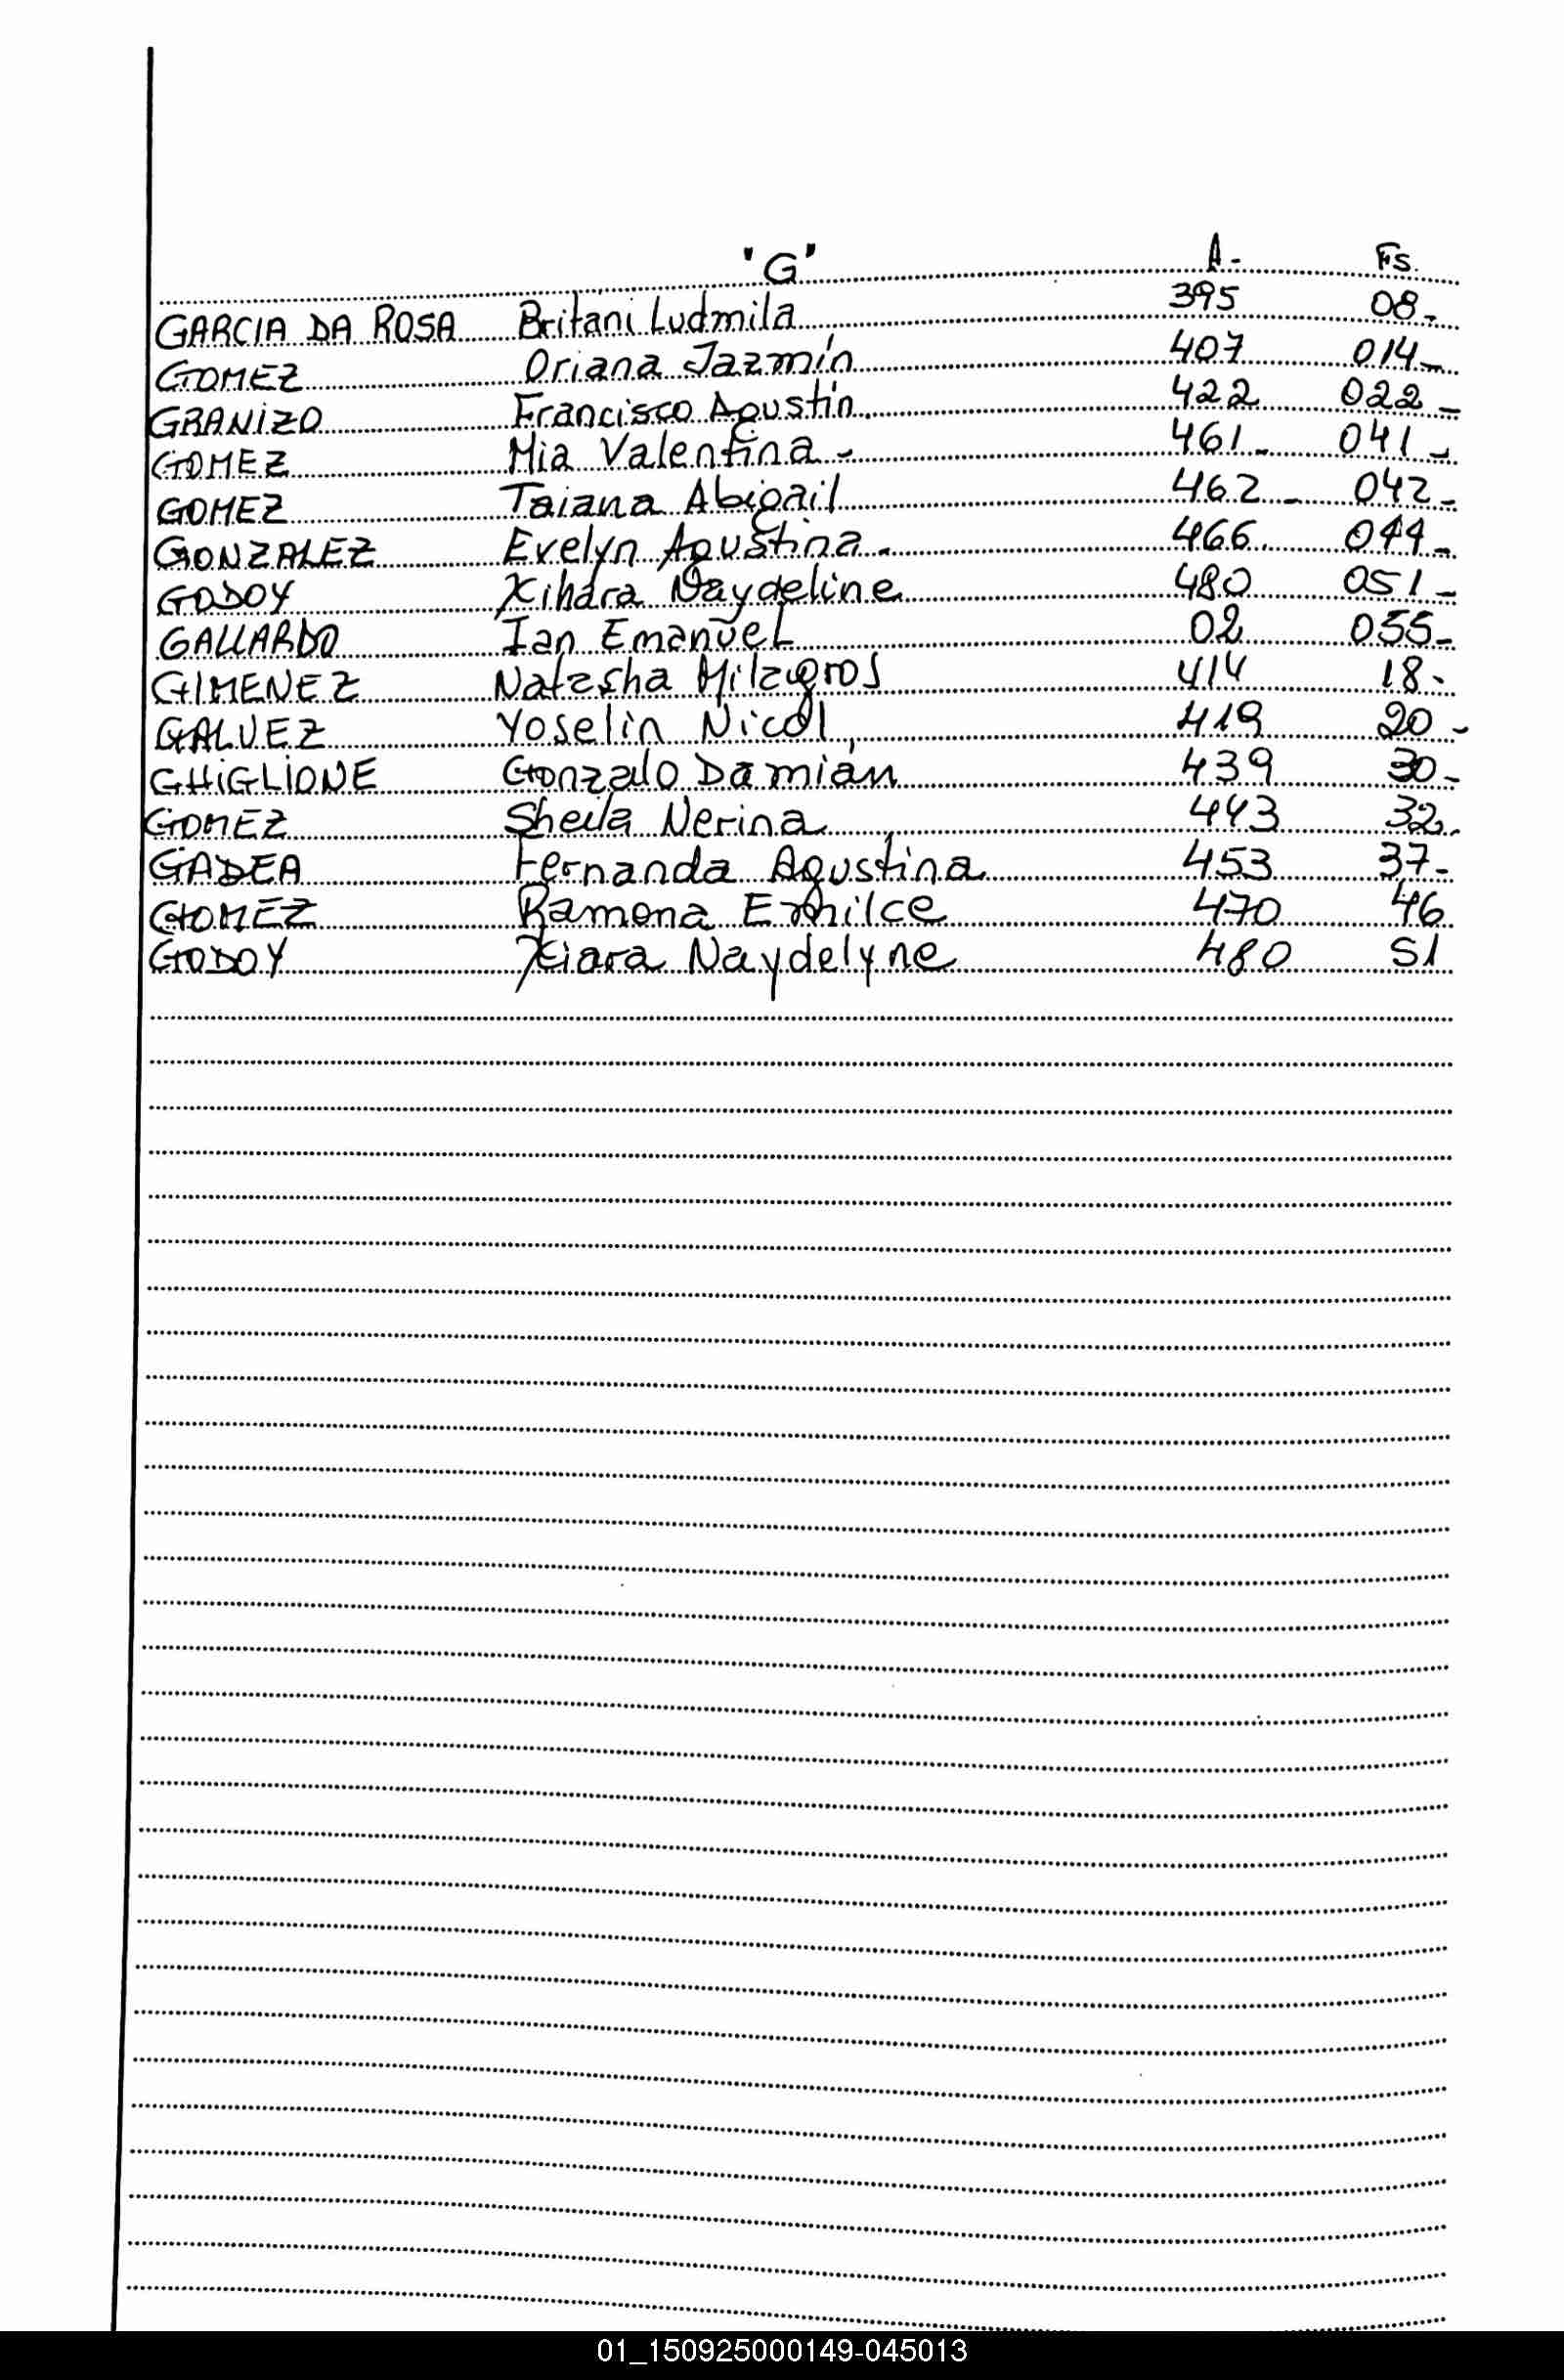 "G" A- Fs.
GARCIA DA ROSA Britani Ludmila 395 08-
GOMEZ Oriana Jazmín 407 014-
GRANIZO Francisco Agustín. 422 022-
GOMEZ Mia Valentina- 461- 041-
GOMEZ Taiana Abigail 462- 042-
GONZALEZ Evelyn Agustina. 466. 044-
GODOY Kihara Naydeline 480 051-
GALLARDO Ian Emanuel 02 055-
GIMENEZ Natasha Milagros 414 18-
GALVEZ Yoselin Nicol, 419 20-
GHIGLIONE Gonzalo Damián 439 30-
GOMEZ Sheila Nerina 443 32.
GADEA Fernanda Agustina 453 37-
GOMEZ Ramona Ermilce 470 46
GODOY Kiara Naydelyne 480 51
01_150925000149-045013